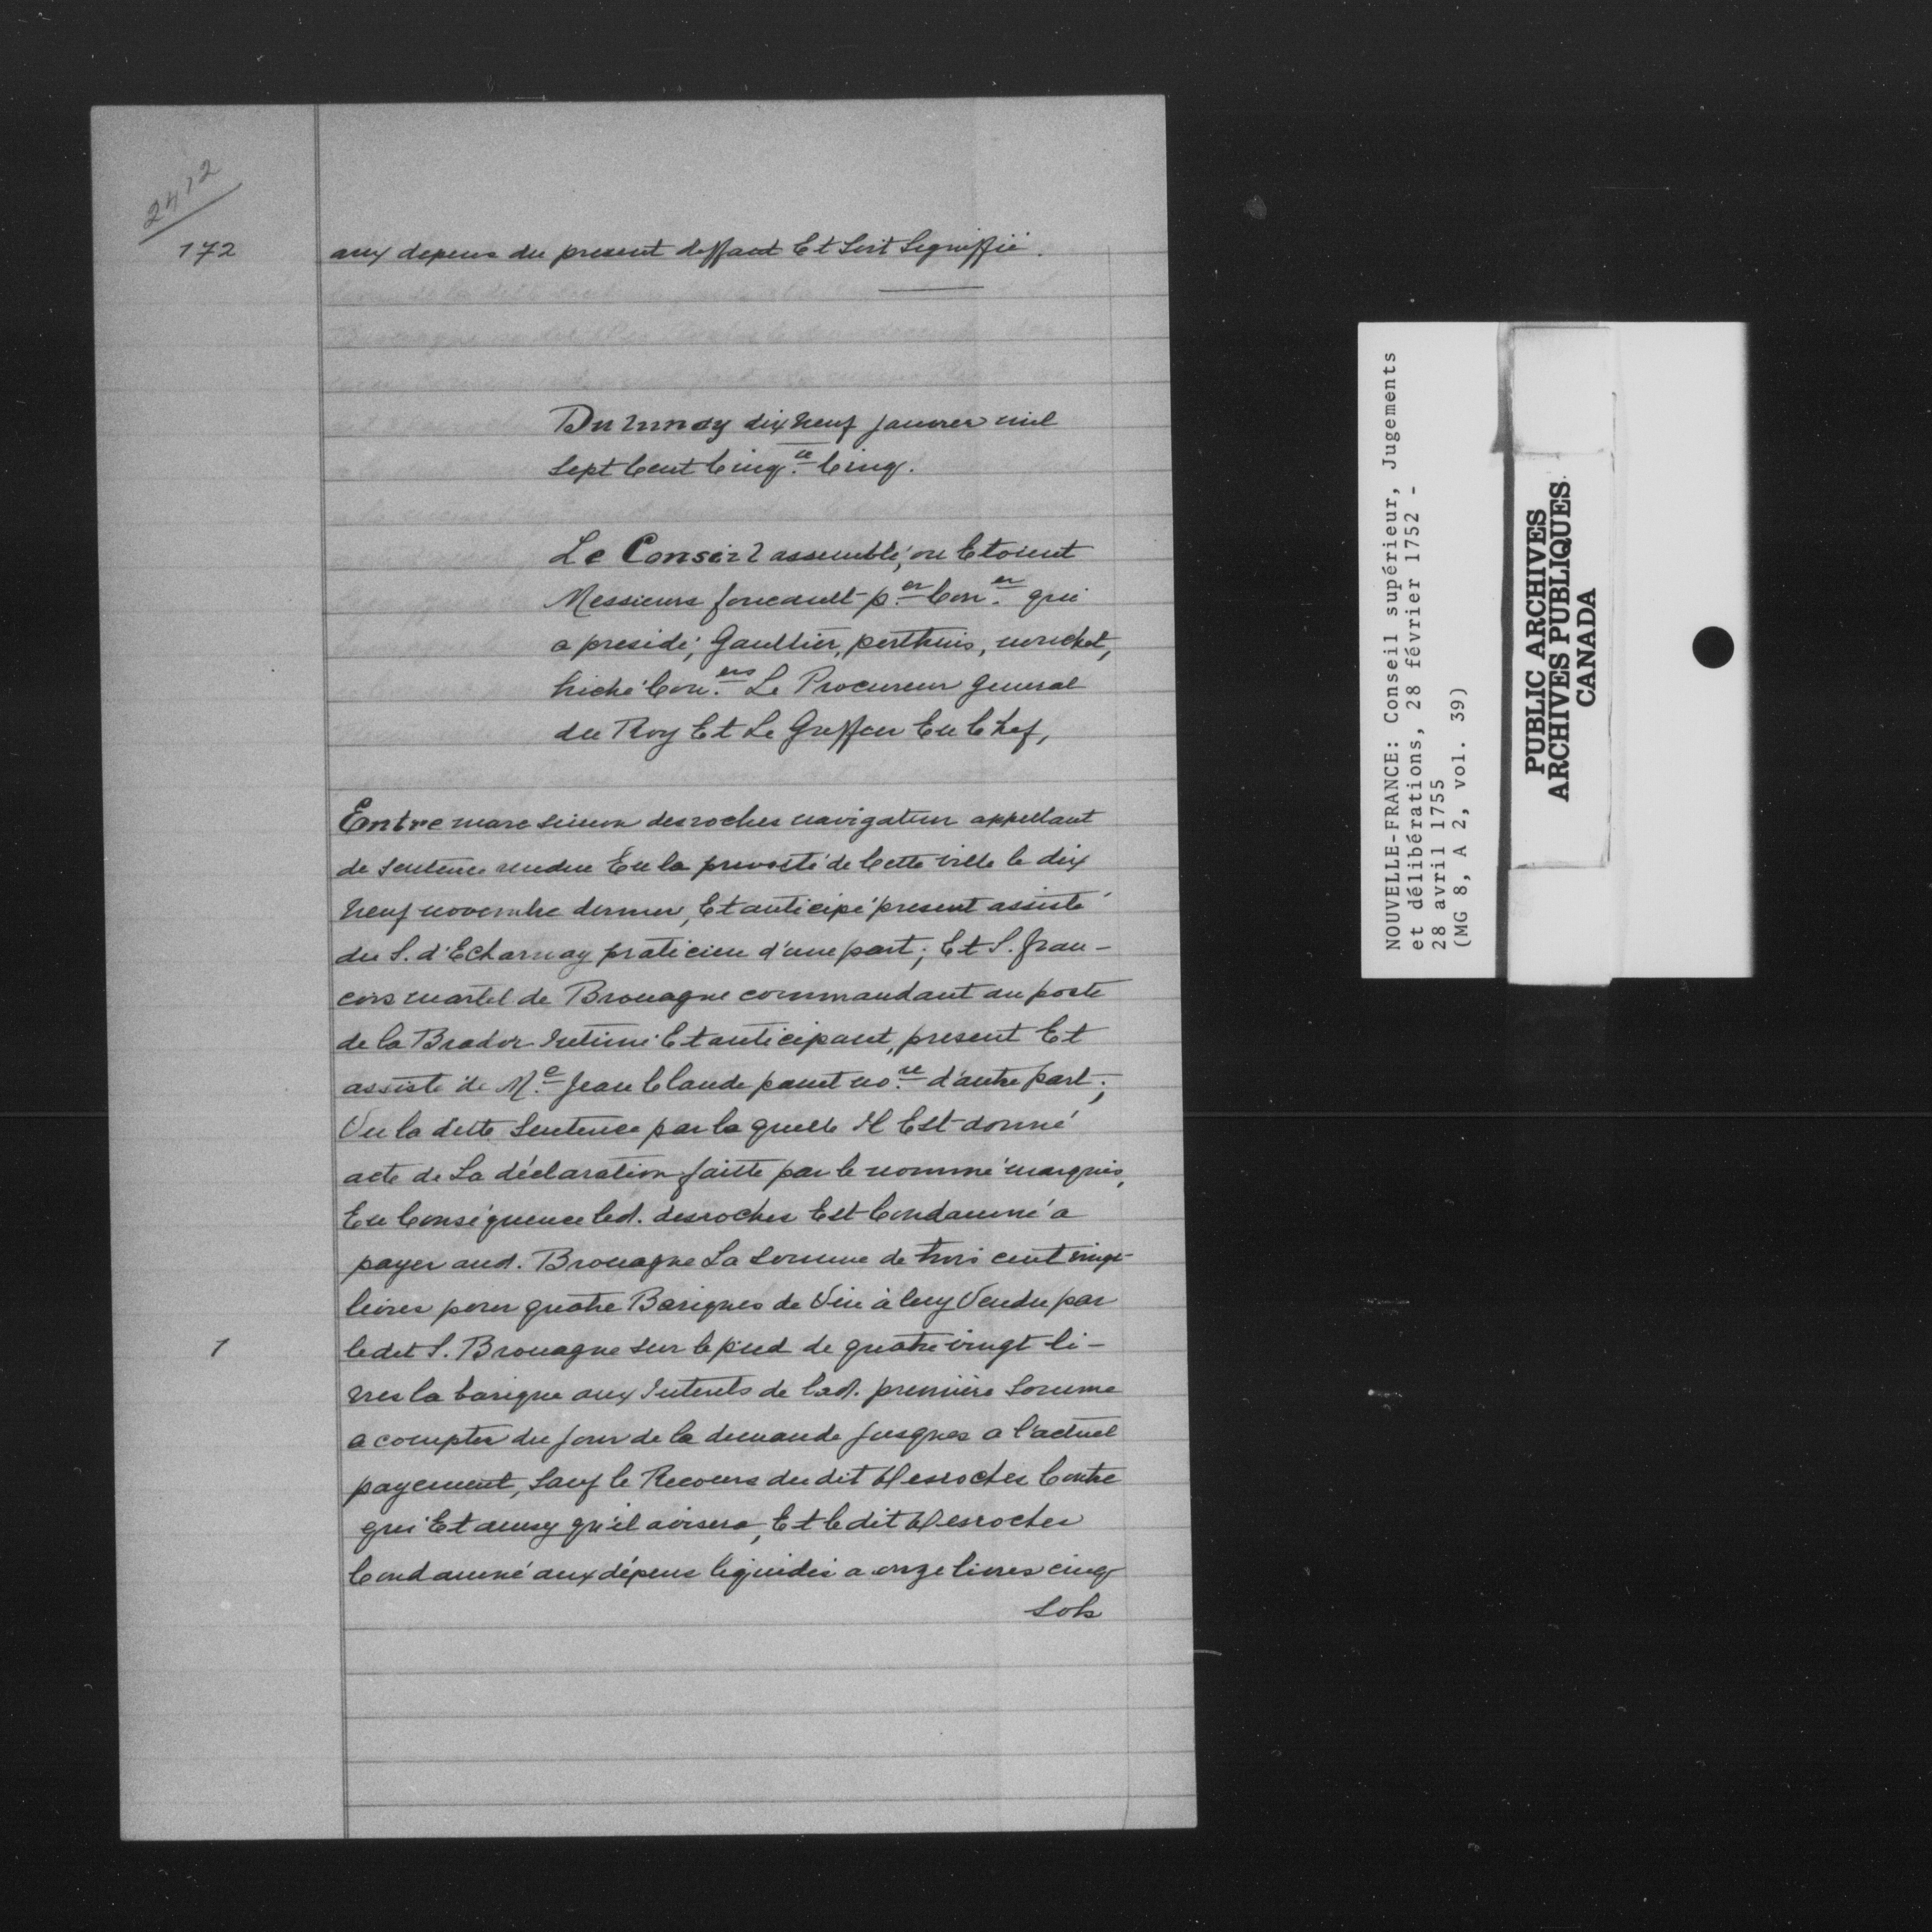 2412
172
aux depens du present deffaut Et Soit Signiffié.
Du Lundy dix neuf janvier mil
Sept Cent Cinq.te Cinq.
Le Conseil assemblé, ou Etoient
Messieurs foucault p.er Con.er qui
a presidé; Gaultier, perthuis, nouchet,
hiché Con.ers Le Procureur General
du Roy Et Le Greffier En Chef,
Entre marc simon desroches navigateur appellant
de Sentence rendue En la prevosté de Cette ville le dix
neuf novembre dernier, Et anticipé present assisté
du S. d'Echarnay praticien d'une part; Et S. fran-
cois martel de Brouague commandant au poste
de la Brador Intimé Et anticipant, present Et
assisté de M.e Jean Claude panet no.re d'autre part;
Vu la dette Sentence par la quelle Il Est donné
acte de La déclaration faitte par le nommé marquis,
En Conséquence led. desroches Est Condamné a
payer aud. Brouague La Somme de trois cent vingt
livres pour quatre Bariques de Vin à luy Vendu par
1
ledit S. Brouague sur le pied de quatre vingt li-
vres la barique aux Interets de lad. première Somme
a compter du jour de la demande jusques a l'actuel
payement, Sauf le Recours du dit Desroches Contre
qui Et ainsy qu'il avisera, Et le dit Desroches
Condamné aux dépens liquidés a onze livres cinq
Sols
NOUVELLE-FRANCE: Conseil supérieur, Jugements
et délibérations, 28 février 1752 -
28 avril 1755
(MG 8, A 2, vol. 39)
PUBLIC ARCHIVES
ARCHIVES PUBLIQUES
CANADA